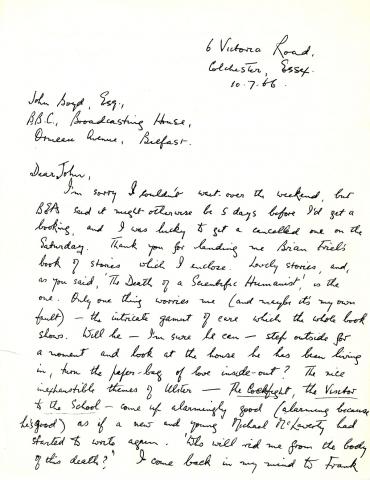 6 Victoria Road,
Colchester, Essex.
10.7.66.
John Boyd, Esq.,
B.B.C., Broadcasting House,
Ormeau Avenue, Belfast.
Dear John,
I'm sorry I couldn't wait over the weekend, but
BEA said it might otherwise be 5 days before I'd get a
booking, and I was lucky to get a cancelled one on the
Saturday. Thank you for lending me Brian Friel's
book of stories which I enclose. Lovely stories, and,
as you said, 'The Death of a Scientific Humanist', is the
one. Only one thing worries me (and maybe it's my own
fault) — the intricate gamut of care which the whole book
shows. Will he — I'm sure he can — step outside for
a moment and look at the house he has been living
in, turn the paper-bag of love inside-out? The nice
inexhaustible themes of Ulster — The Cockfight, the Visitor
to the School — come up alarmingly good (alarming because
he's good) as if a new and young Michael McLaverty had
started to write again. 'Who will rid me from the body
of this death?' I come back in my mind to Frank